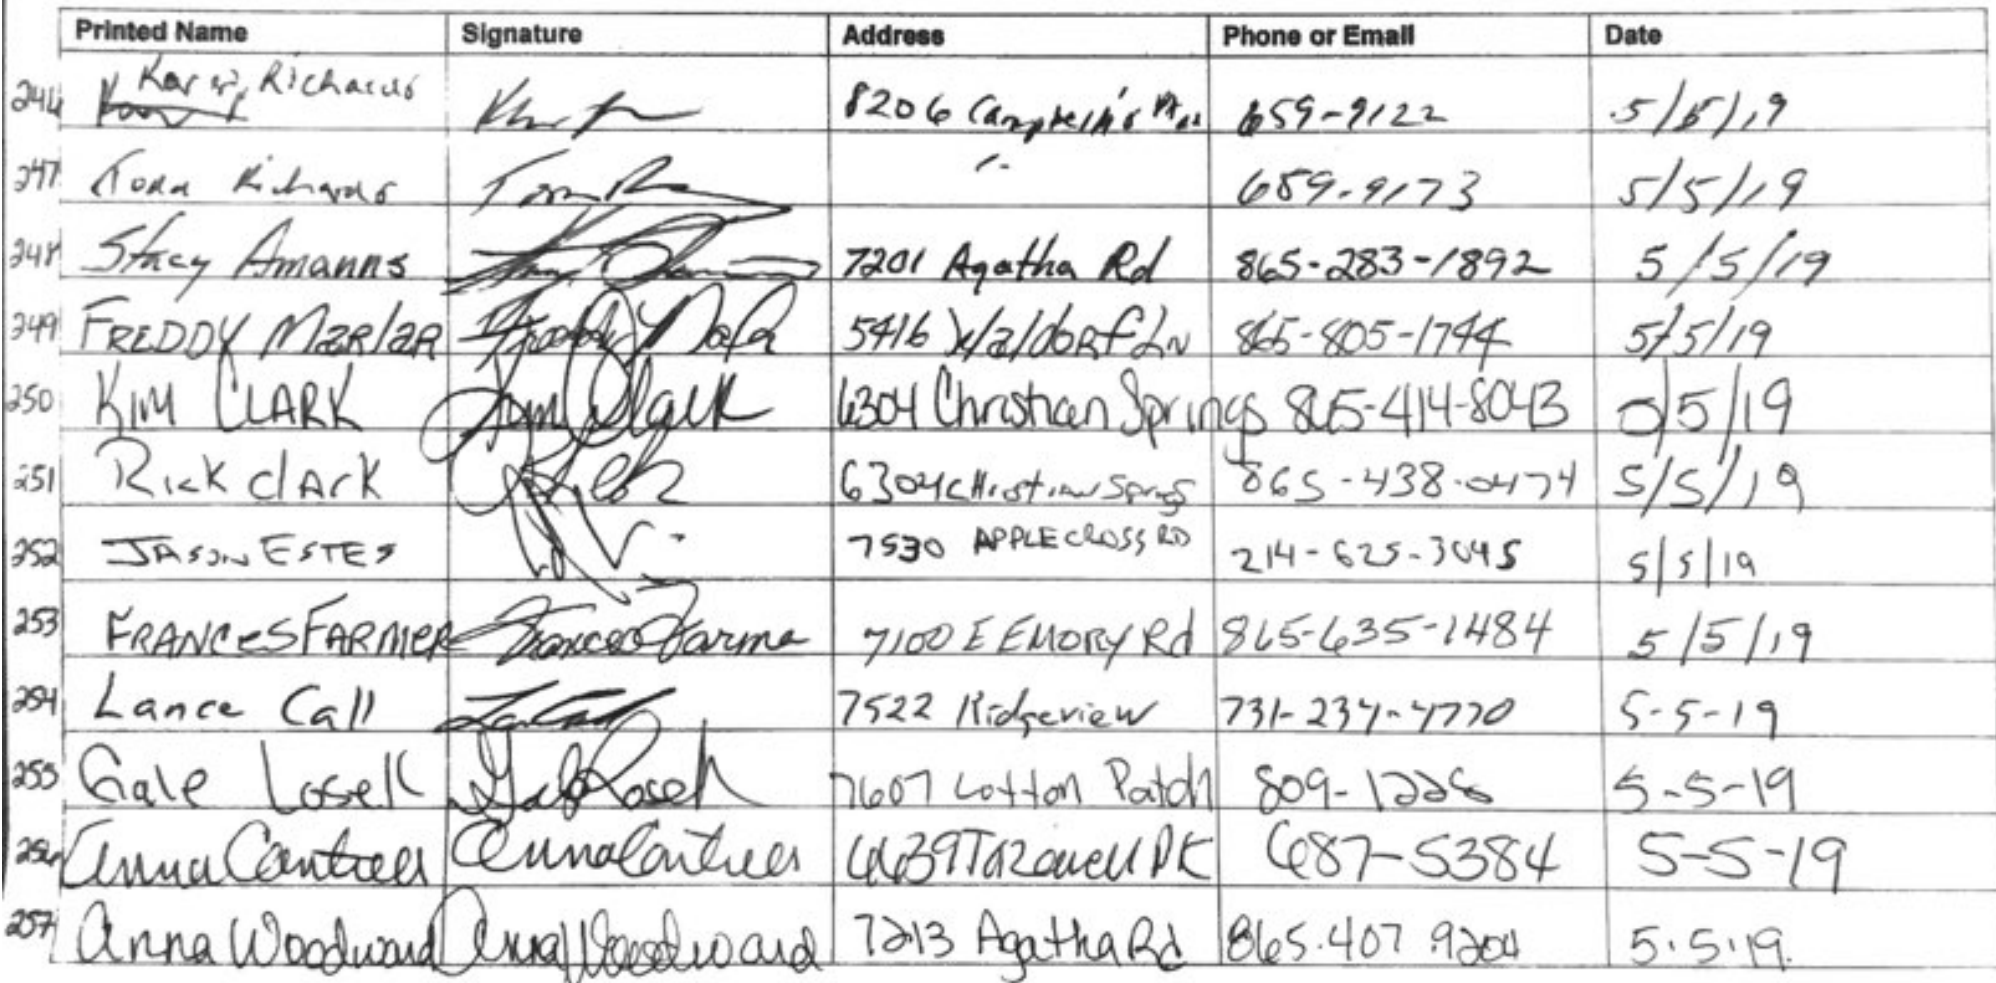 Printed Name Signature Address Phone or Email Date
246 Richards 8206 659-9122 5/5/19
247 Todd Richards 659-9173 5/5/19
248 Stacy Amanns 7201 Agatha Rd 865-283-1892 5/5/19
249 FREDDY Marlar 5416 Waldorf Ln 865-805-1744 5/5/19
250 KIM CLARK Kim Clark 6304 Christian Springs 865-414-8043 5/5/19
251 Rick Clark 6304 Christian Springs 865-438-0474 5/5/19
252 JASON ESTES 7530 APPLECROSS RD 214-625-3045 5/5/19
253 FRANCES FARMER Frances Farmer 7100 E EMORY Rd 865-635-1484 5/5/19
254 Lance Call 7522 Ridgeview 731-234-4770 5-5-19
255 Gale Losell Gale Losell 7607 Cotton Patch 809-1228 5-5-19
256 Anna Cantrell Anna Cantrell 6639 Tazewell PK 687-5384 5-5-19
257 Anna Woodward Anna Woodward 7213 Agatha Rd 865.407.9204 5.5.19.